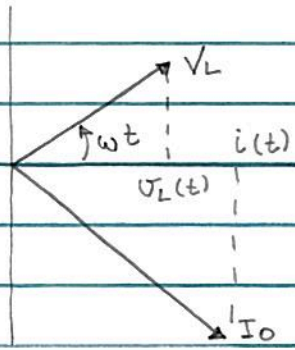 V_L
ωt
i(t)
v_L(t)
I_0